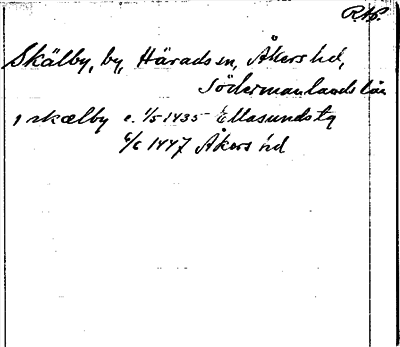 RAp.
Skälby, by, Härads sn, Åkers hd,
Södermanlands län
i skælby c. 1/5 1435 Ellasundstg
6/6 1447 Åkers hd